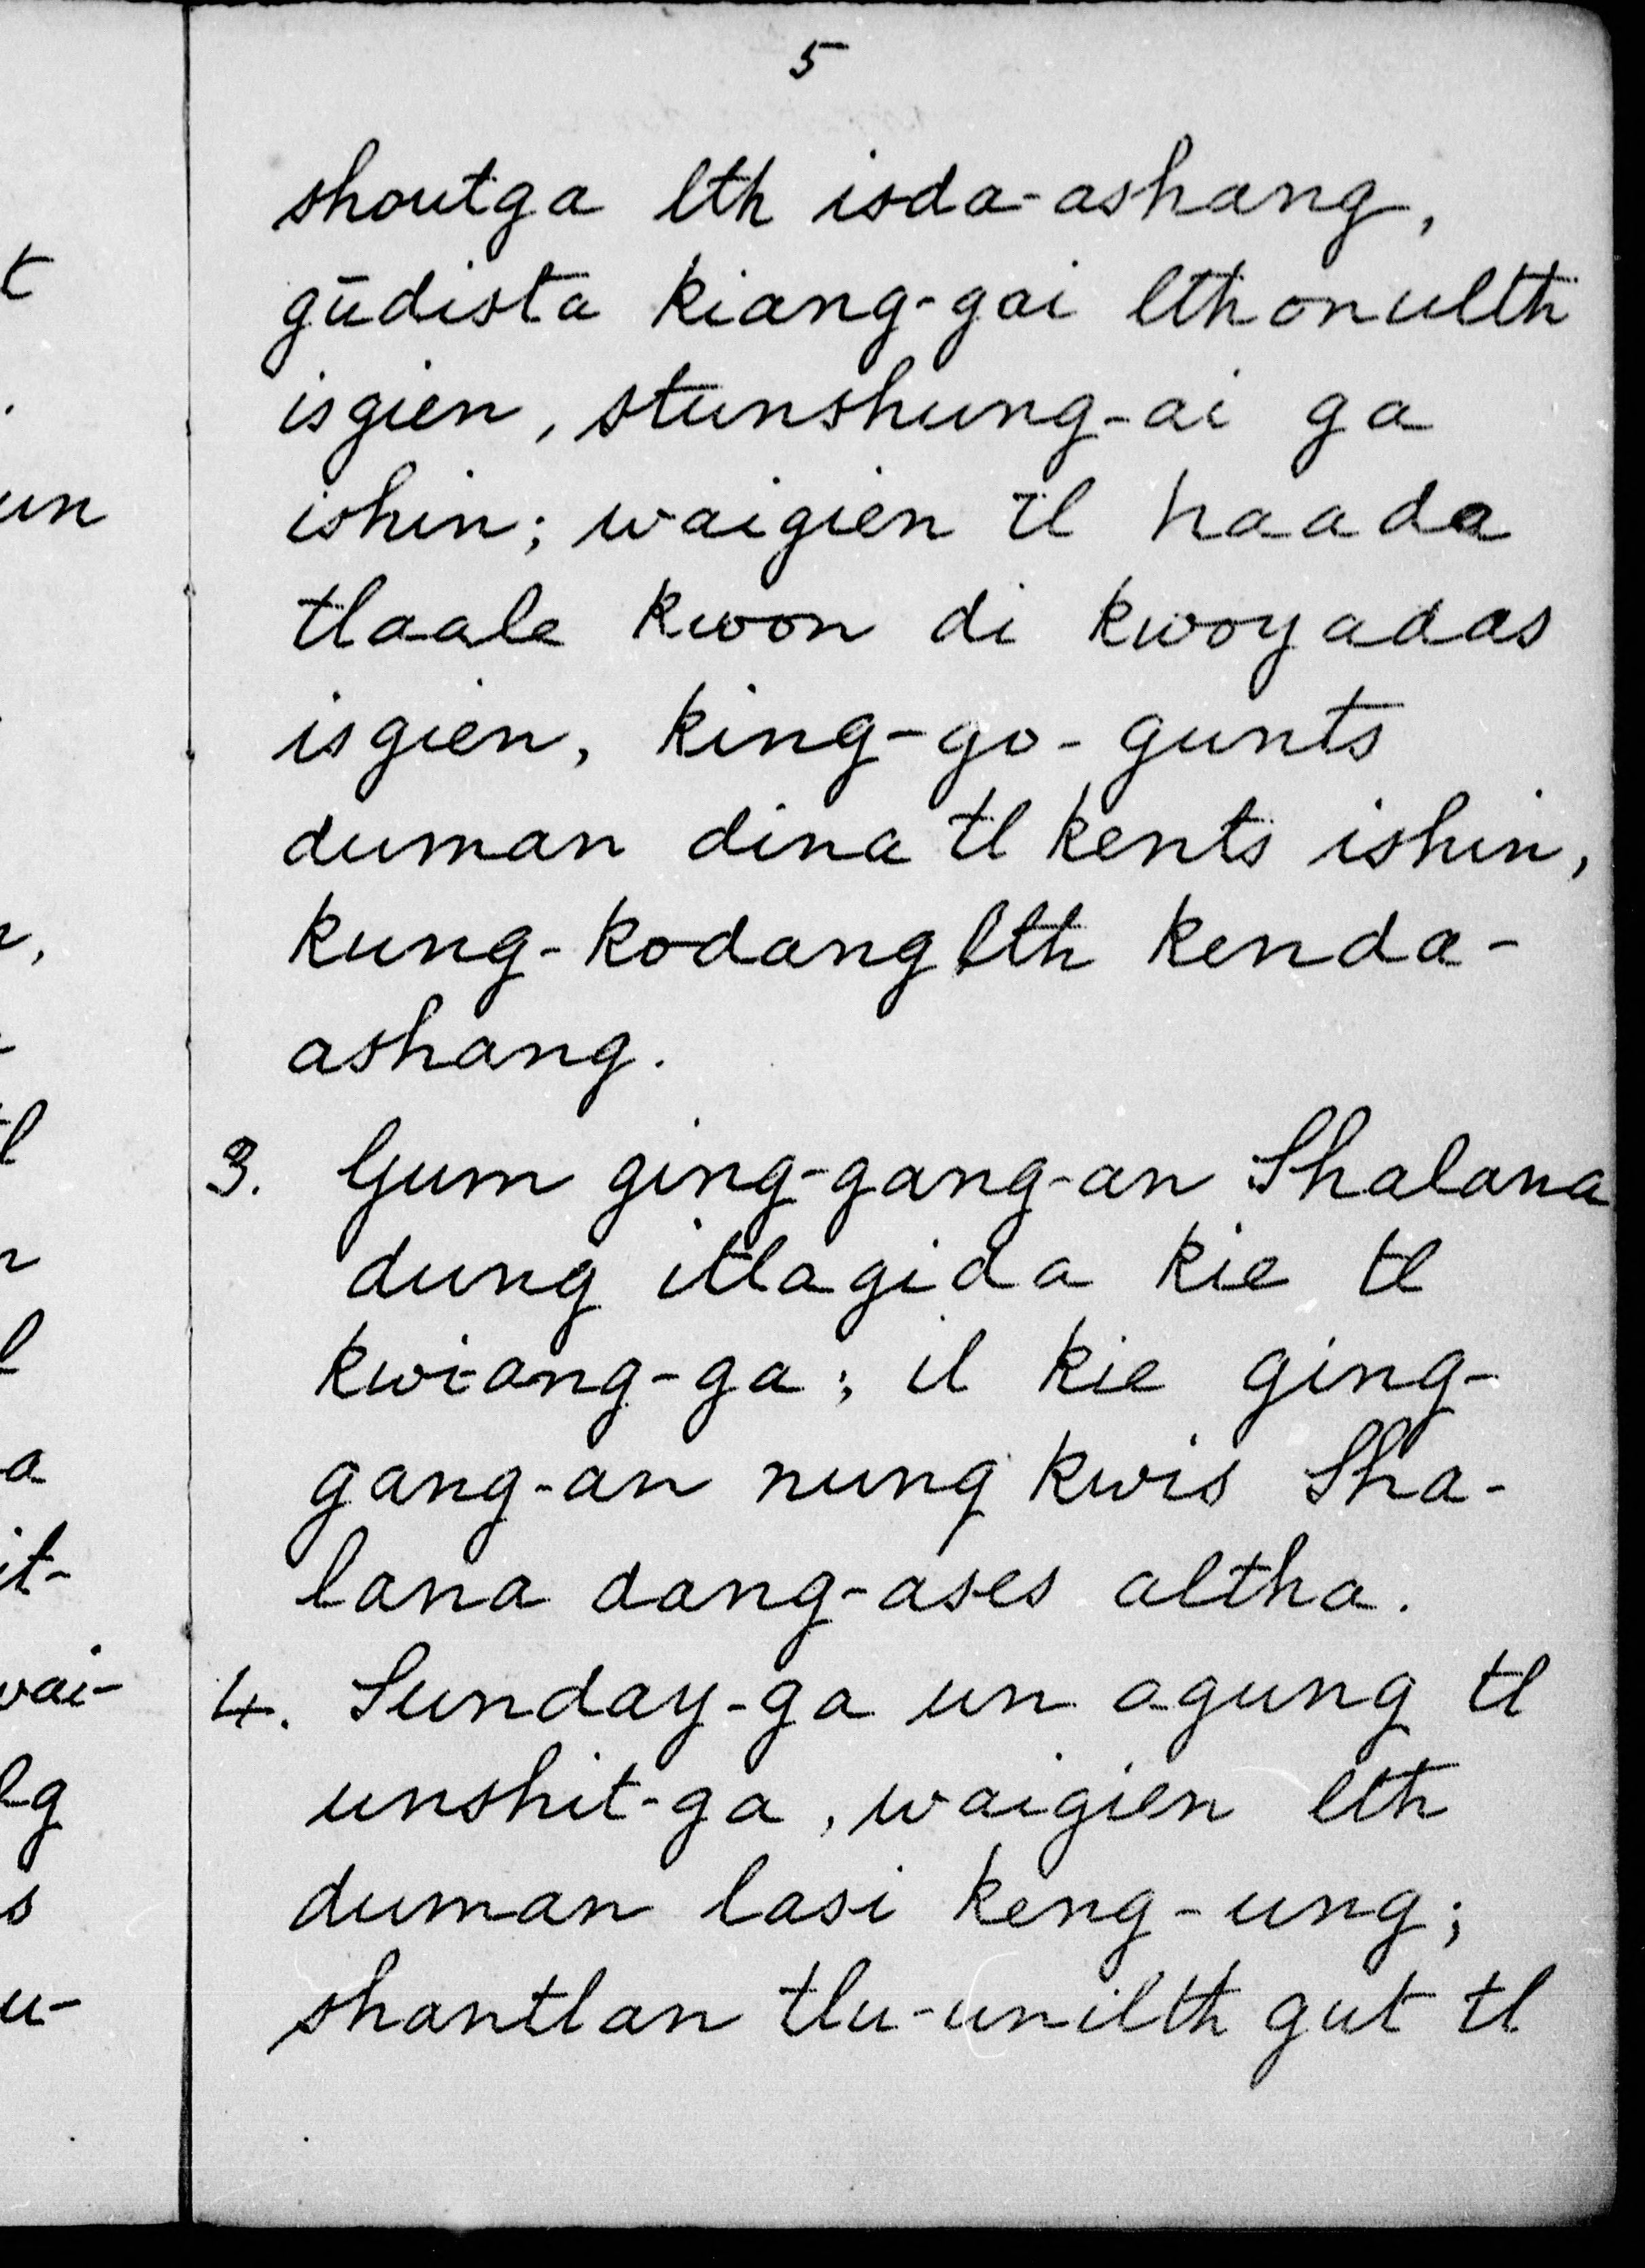 5
shoutga lth isda-ashang,
gūdista kiang-gai lthonulth
isgien, stunshung-ai ga
ishin; waigien tl haada
tlaale kwon di kwoyadas
isgien, king-go-gunts
duman dina tl kents ishin,
kung-kodang lth kenda-
ashang.
3. Gum ging-gang-an Shalana
dung itlagida kie tl
kwi-ang-ga; il kie ging-
gang-an nung kwis Sha-
lana dang-ases altha.
4. Sunday-ga un agung tl
unshit-ga, waigien lth
duman lasi keng-ung;
shantlan tlu-unilth gut tl